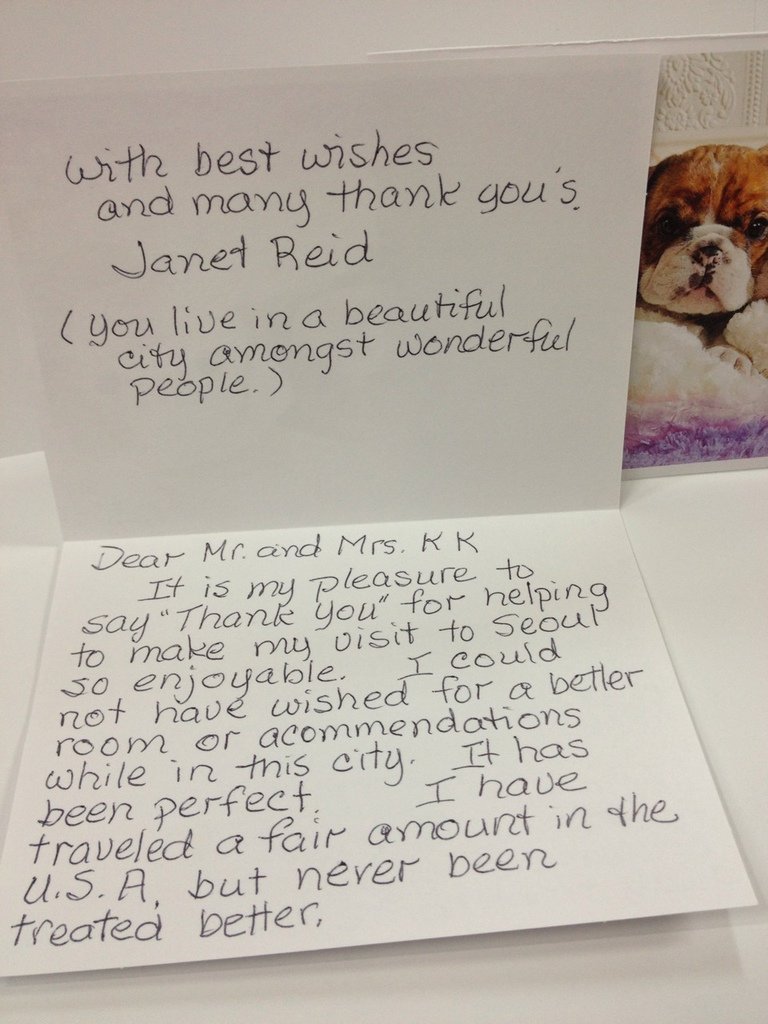 with best wishes
and many thank you's.
Janet Reid
(you live in a beautiful
city amongst wonderful
people.)
Dear Mr. and Mrs. K K
It is my pleasure to
say "Thank You" for helping
to make my visit to Seoul
so enjoyable. I could
not have wished for a better
room or acommendations
while in this city. It has
been perfect. I have
traveled a fair amount in the
U.S.A. but never been
treated better.